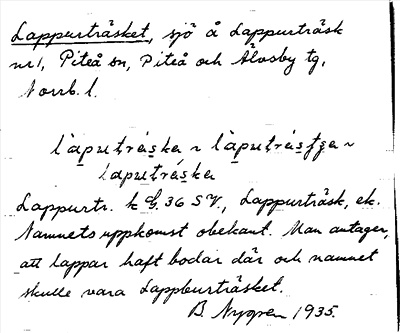 Lappurträsket, sjö å Lappurträsk
nr 1, Piteå sn, Piteå och Älvsby tg,
Norrb. l.
làpuṭrá̀ska ~ làpuṭrá̀sṭʒa ~
lapuṭrá̀ska
Lappurtr. k G. 36 SV., Lappurträsk, ek.
Namnets uppkomst obekant. Man antager,
att lappar haft bodar där och namnet
skulle vara Lappburträsket.
B. Nygren 1935.